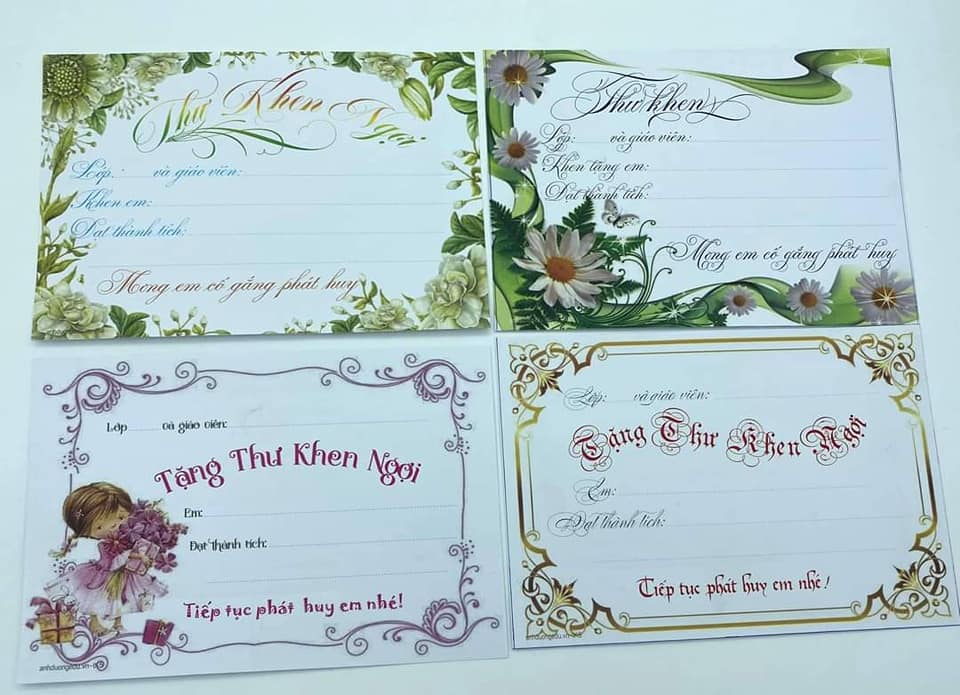 Thư Khen
Lớp: và giáo viên:
Khen em:
Đạt thành tích:
Mong em cố gắng phát huy
Thư khen
Lớp: và giáo viên:
Khen tặng em:
Đạt thành tích:
Mong em cố gắng phát huy
Lớp và giáo viên:
Tặng Thư Khen Ngợi
Em:
Đạt thành tích:
Tiếp tục phát huy em nhé!
Lớp: và giáo viên:
Tặng Thư Khen Ngợi
Em:
Đạt thành tích:
Tiếp tục phát huy em nhé!